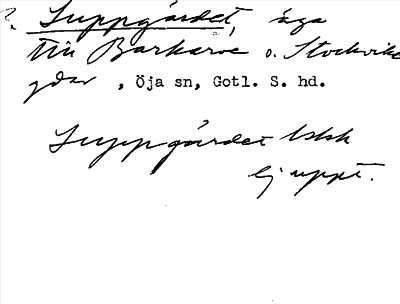 ? Suppgårdet, äga
till Barkarve o. Stockvike
gdar , Öja sn, Gotl. S. hd.
Suppgårdet
Ej uppt.